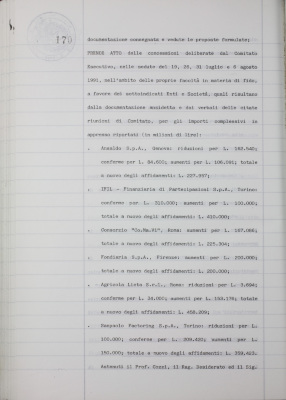 170
documentazione consegnata e vedute le proposte formulate;
PRENDE ATTO delle concessioni deliberate dal Comitato
Esecutivo, nelle sedute del 10, 25, 31 luglio e 8 agosto
1991, nell'ambito delle proprie facoltà in materia di fido,
a favore dei sottoindicati Enti e Società, quali risultano
dalla documentazione anzidetta e dai verbali delle citate
riunioni di Comitato, per gli importi complessivi in
appresso riportati (in milioni di lire):
. Ansaldo S.p.A., Genova: riduzioni per L.
conferme per L. aumenti per L. totale
a nuovo degli affidamenti: L.
. IFIL - Finanziaria di Partecipazioni S.p.A., Torino:
conferme per L. 310.000; aumenti per L. 100.000;
totale a nuovo degli affidamenti: L. 410.000;
. Consorzio Roma: aumenti per L.
totale a nuovo degli affidamenti: L.
. Fondiaria S.p.A., Firenze: aumenti per L. 200.000;
totale a nuovo degli affidamenti: L. 200.000;
. Agricola Lieta S.r.l., Roma: riduzioni per L.
conferme per L. aumenti per L. totale
a nuovo degli affidamenti: L.
. Sanpaolo Factoring S.p.A., Torino: riduzioni per L.
100.000; conferme per L. aumenti per L.
150.000; totale a nuovo degli affidamenti: L.
Astenuti il Prof. il Rag. Desiderato ed il Sig.